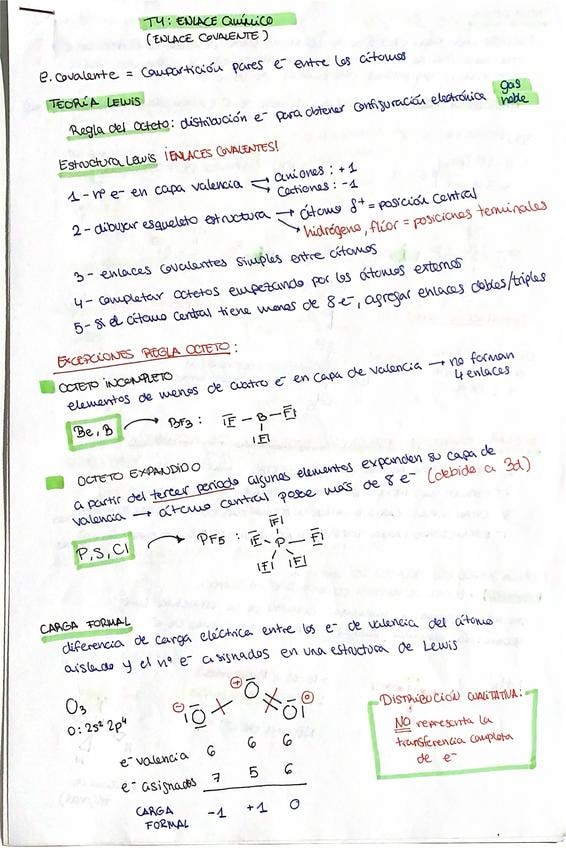 T4: ENLACE QUÍMICO
(ENLACE COVALENTE)
E. covalente = Compartición pares e⁻ entre los átomos
TEORÍA LEWIS
Regla del Octeto: distribución e⁻ para obtener configuración electrónica gas noble
Estructura Lewis ¡ENLACES COVALENTES!
1 - nº e⁻ en capa valencia → aniones: +1
→ Cationes: -1
2 - dibujar esqueleto estructura → átomo δ⁺ = posición central
→ hidrógeno, flúor = posiciones terminales
3 - enlaces covalentes simples entre átomos
4 - completar octetos empezando por los átomos externos
5 - si el átomo central tiene menos de 8 e⁻, agregar enlaces dobles/triples
EXCEPCIONES REGLA OCTETO:
OCTETO INCOMPLETO
elementos de menos de cuatro e⁻ en capa de valencia → no forman 4 enlaces
Be, B → BF3: F — B — F
F
OCTETO EXPANDIDO
a partir del tercer período algunos elementos expanden su capa de
valencia → átomo central posee más de 8 e⁻ (debido a 3d)
F
P, S, Cl → PF5: F P F
F F
CARGA FORMAL
diferencia de carga eléctrica entre los e⁻ de valencia del átomo
aislado y el nº e⁻ asignados en una estructura de Lewis
O3
O: 2s² 2p⁴
⊖ O ⊕ O O 0
e⁻ valencia 6 6 6
e⁻ asignados 7 5 6
CARGA FORMAL -1 +1 0
DISTRIBUCIÓN CUALITATIVA:
NO representa la
transferencia completa
de e⁻